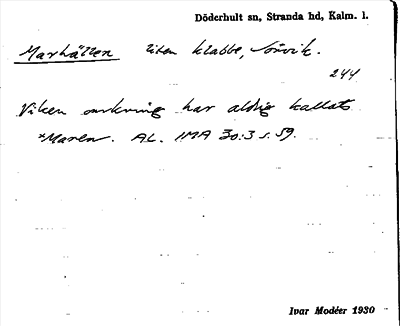 Döderhult sn, Stranda hd, Kalm. l.
Marhällen liten klabbe, Sörvik.
244
Viken omkring har aldrig kallats
*Maren. AL. IMA 30:3 s. 59.
Ivar Modéer 1930